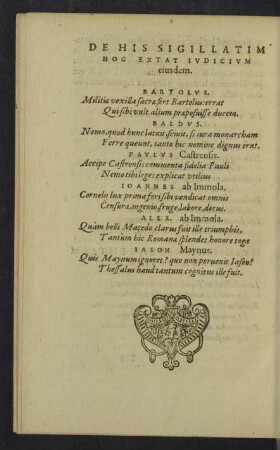 DE HIS SIGILLATIM
HOC EXTAT IVDICIVM
eiusdem.
BARTOLVS.
Militiæ vexilla sacræ fert Bartolus: errat
Qui sibi vult alium præposuisse ducem.
BALDVS.
Nemo, quod hunc latuit, sciuit. si iura monarcham
Ferre queunt, tanto hic nomine dignus erat.
PAVLVS Castrensis.
Accipe Castrensis commenta fidelia Pauli
Nemo tibi leges explicat vtilius
IOANNES ab Immola.
Cornely lux prima fori sibi vendicat omnis
Censuræ, ingenio, fruge, labore, decus.
ALEX. ab Immola.
Quàm belli Macedo clarus fuit ille triumphis,
Tantùm hic Romanæ splendet honore togæ
IASON Maynus.
Quis Maynum ignoret? quo non peruenit Iason?
Thessalus haud tantum cognitus ille fuit.